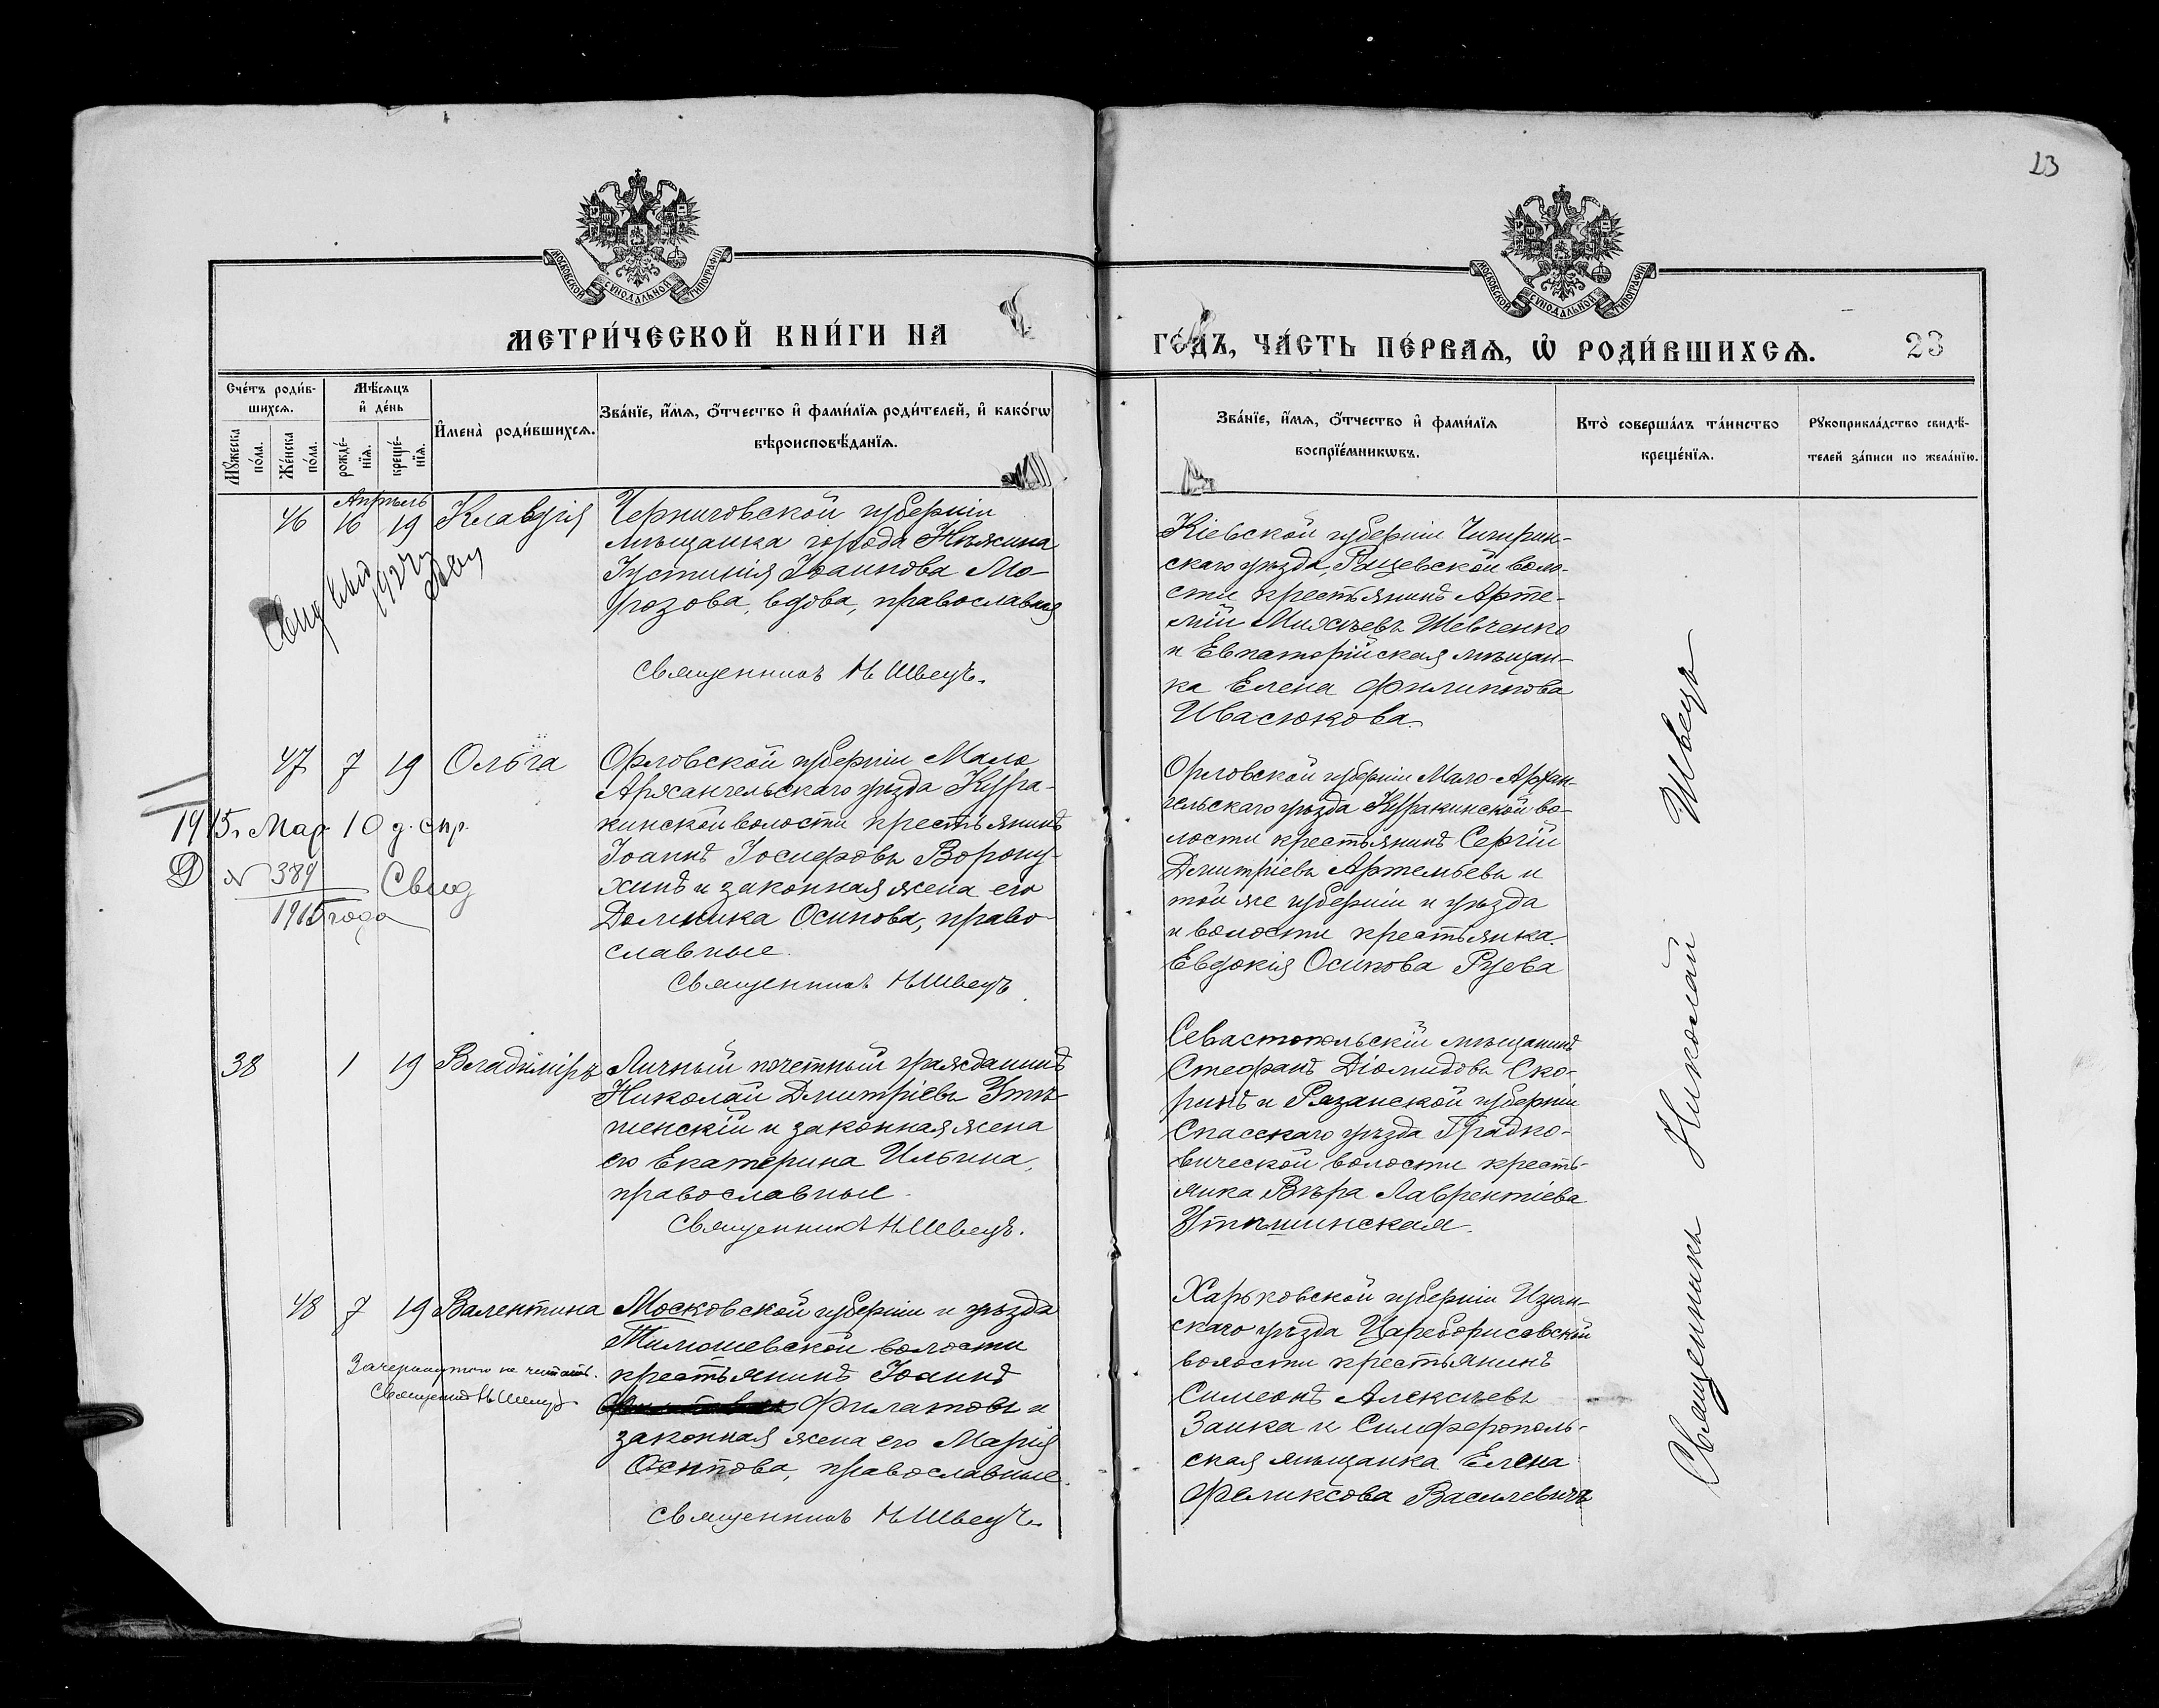 23
МОСКОВСКОЙ СѴНОДАЛЬНОЙ ТИПОГРАФІИ
МОСКОВСКОЙ СѴНОДАЛЬНОЙ ТИПОГРАФІИ
МЕТРИ́ЧЕСКОЙ КНИ́ГИ НА
ГО́ДЪ, ЧА́СТЬ ПЕ́РВАЯ, Ѡ҆ РОДИ́ВШИХСЯ.
23
Сче́тъ роди́в-
шихся.
Мѣ́сяцъ
и҆ де́нь
Мꙋ́жеска
по́ла.
Же́нска
по́ла.
рожде́-
нїя.
креще́-
нїя.
И҆мена̀ роди́вшихся.
Зва́нїе, и҆́мя, ѻ҆́тчество и҆ фами́лїя роди́телей, и҆ како́гѡ
вѣроисповѣ́данїя.
Зва́нїе, и҆́мя, ѻ҆́тчество и҆ фами́лїя
воспрїе́мникѡвъ.
Кто̀ соверша́лъ та́инство
креще́нїя.
Рꙋкоприкла́дство свидѣ́-
телей за́писи по жела́нїю.
Апрѣль
46 16 19 Клавдія
Черниговской губерніи
мѣщанка города Нѣжина
Іустинія Іоаннова Мо-
розова, вдова, православная
Священникъ Н Швецъ.
Кіевской губерніи Чигирин-
скаго уѣзда, Рацевской воло-
сти крестьянинъ Арте-
мій Михѣевъ Шевченко
и Евпаторійская мѣщан-
ка Елена Филиппова
Ивасюкова.
47 7 19 Ольга
1915 г. Мар. 10 д. спр.
№ 389 Свид
1915 года
Орловской губерніи Мало
Архангельскаго уѣзда Кура-
кинской волости крестьянинъ
Іоаннъ Іосифовъ Ворону-
хинъ и законная жена его
Домника Осипова, право-
славные.
Священникъ Н Швецъ.
Орловской губерніи Мало-Архан-
гельскаго уѣзда Куракинской во-
лости крестьянинъ Сергій
Димитріевъ Артемьевъ и
той же губерніи и уѣзда
и волости крестьянка
Евдокія Осипова
38 1 19 Владиміръ
Личный почетный гражданинъ
Николай Димитріевъ Утѣ-
шенскій и законная жена
его Екатерина Ильина,
православные.
Священникъ Н Швецъ.
Севастопольскій мѣщанинъ
Стефанъ Діомидовъ Ско-
ринъ и Рязанской губерніи
Спасскаго уѣзда
волости кресть-
янка Вѣра Лаврентіева
Утѣшинская.
48 7 19 Валентина
Зачеркнутое не читать.
Священникъ Н Швецъ
Московской губерніи и уѣзда
волости
крестьянинъ Іоаннъ
Филатовъ и
законная жена его Марія
Осипова, православные.
Священникъ Н Швецъ.
Харьковской губерніи Изюм-
скаго уѣзда Цареборисовской
волости крестьянинъ
Симеонъ Алексѣевъ
Заика и Симферополь-
ская мѣщанка Елена
Феликсова Васильевичъ
Священникъ Николай Швецъ